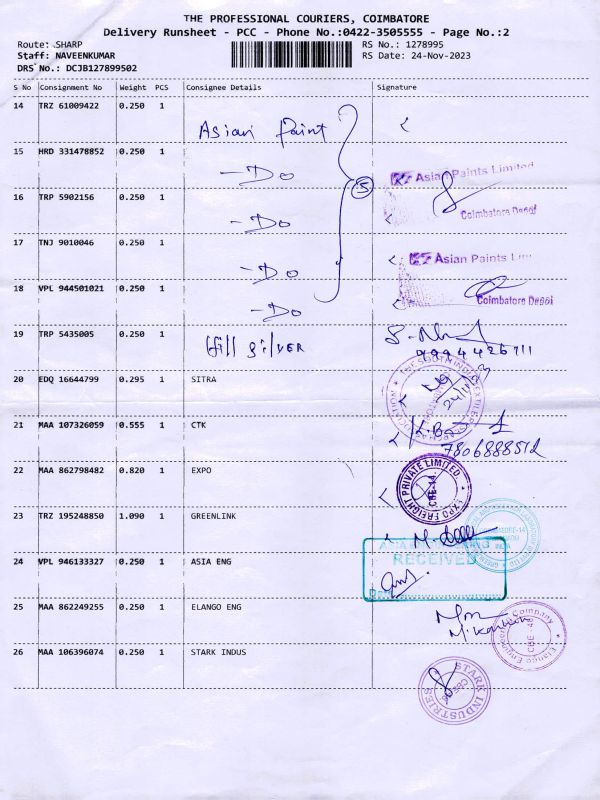 THE PROFESSIONAL COURIERS, COIMBATORE
Delivery Runsheet - PCC - Phone No.:0422-3505555 - Page No.:2
Route: SHARP RS No.: 1278995
Staff: NAVEENKUMAR RS Date: 24-Nov-2023
DRS No.: DCJB127899502
S No Consignment No Weight PCS Consignee Details Signature
14 TRZ 61009422 0.250 1
Asian Paint
15 HRD 331478852 0.250 1
-Do
Asian Paints Limited
16 TRP 5902156 0.250 1
5
-Do
Coimbatore Depot
17 TNJ 9010046 0.250 1
-Do
Asian Paints
18 VPL 944501021 0.250 1
-Do
Coimbatore Depot
19 TRP 5435005 0.250 1
Hill silver
9994426711
20 EDQ 16644799 0.295 1 SITRA
21 MAA 107326059 0.555 1 CTK
7806888512
22 MAA 862798482 0.820 1 EXPO
EXPO FREIGHT PRIVATE LIMITED
CBE-44
23 TRZ 195248850 1.090 1 GREENLINK
24 VPL 946133327 0.250 1 ASIA ENG
RECEIVED
25 MAA 862249255 0.250 1 ELANGO ENG
Elango Engineering Company
26 MAA 106396074 0.250 1 STARK INDUS
STARK INDUSTRIES